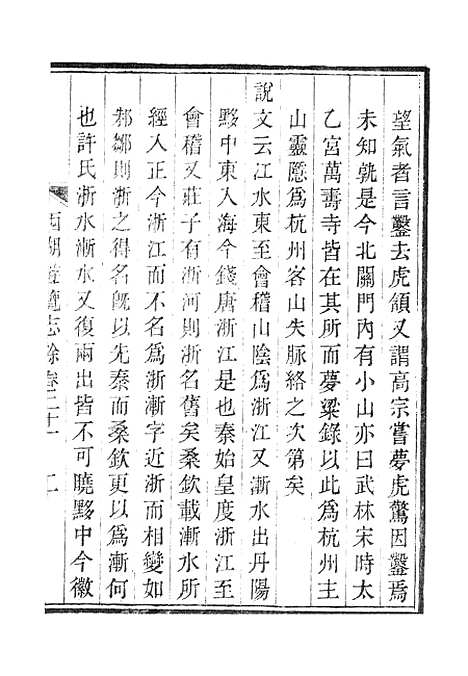 望氣者言鑿去虎頷又謂高宗嘗夢虎驚因鑿焉
未知孰是今北關門內有小山亦曰武林宋時太
乙宮萬壽寺皆在其所而夢粱錄以此爲杭州主
山靈隱爲杭州客山失脉絡之次第矣
說文云江水東至會稽山陰爲浙江又漸水出丹陽
黟中東入海今錢唐浙江是也秦始皇度浙江至
會稽又莊子有浙河則浙名舊矣桑欽載漸水所
經入正今浙江而不名爲浙漸字近浙而相變如
邾鄒則浙之得名旣以先秦而桑欽更以爲漸何
也許氏浙水漸水又復兩出皆不可曉黟中今徽
西湖遊覽志餘卷二十一 二